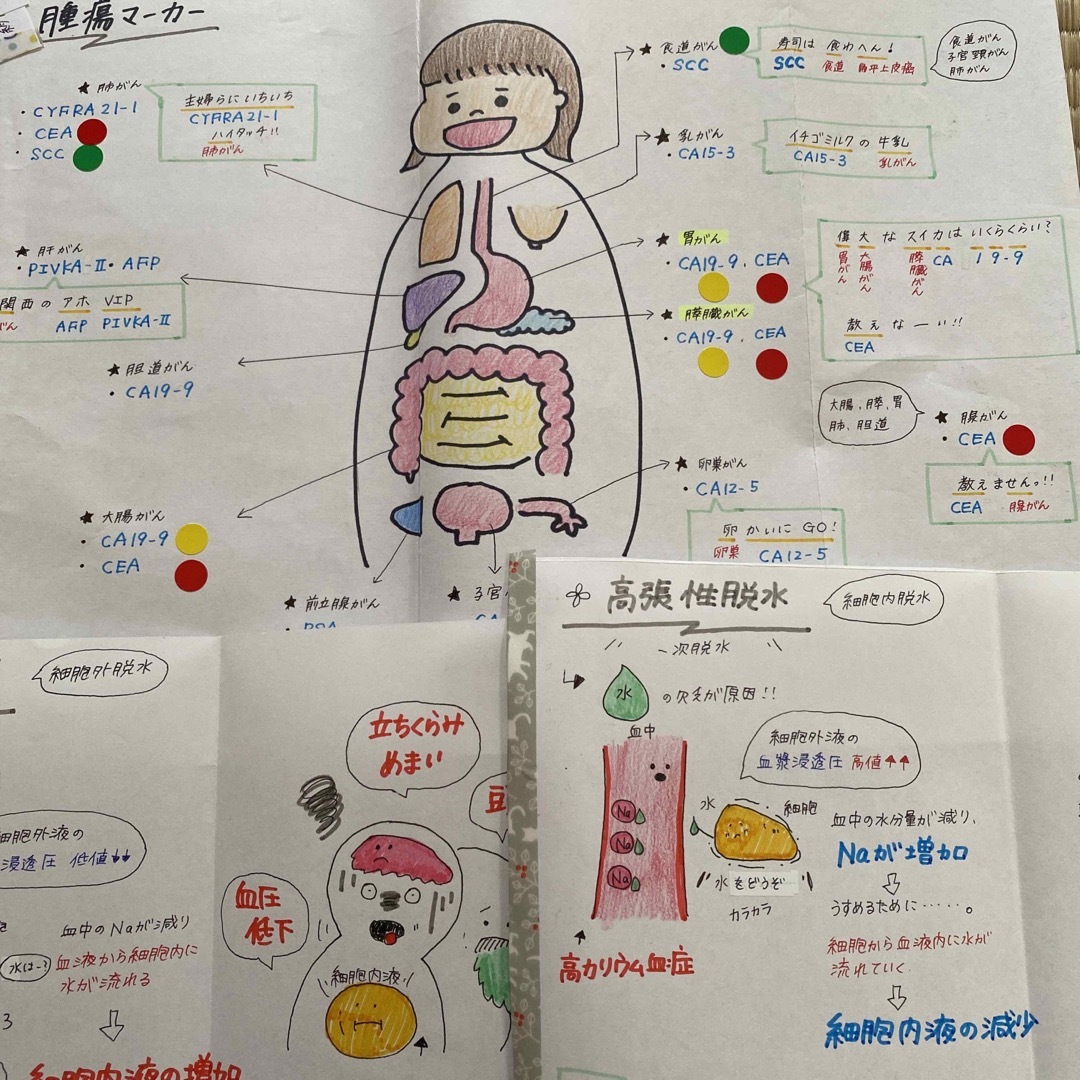 腫瘍マーカー
★ 肺がん
・CYFRA 21-1
・CEA
・SCC
主婦らにいちいち
CYFRA 21-1
ハイタッチ!!
肺がん
★ 肝がん
・PIVKA-Ⅱ・AFP
関西の アホ VIP
AFP PIVKA-Ⅱ
★ 胆道がん
・CA19-9
★ 大腸がん
・CA19-9
・CEA
★ 前立腺がん
★ 食道がん
・SCC
寿司は 食わへん!
SCC 食道 扁平上皮癌
食道がん
子宮頸がん
肺がん
★ 乳がん
・CA15-3
イチゴミルクの 牛乳
CA15-3 乳がん
★ 胃がん
・CA19-9、CEA
★ 膵臓がん
・CA19-9、CEA
偉大 な スイカは いくらくらい?
胃がん 大腸がん 膵臓がん CA 19-9
教え な ー い!!
CEA
大腸、膵、胃
肺、胆道
★ 腺がん
・CEA
教え ませんっ!!
CEA 腺がん
★ 卵巣がん
・CA12-5
卵 かいに GO!
卵巣 CA12-5
★ 子宮
細胞外脱水
立ちくらみ
めまい
血圧
低下
細胞外液の
浸透圧 低値↓↓
血中のNaが減り
水は〜?
血液から細胞内に
水が流れる
細胞内液の増加
細胞内液
高張性脱水
細胞内脱水
一次脱水
水 の欠乏が原因!!
血中
細胞外液の
血漿浸透圧 高値↑↑
Na
Na
Na
水
細胞
水をどうぞ…
カラカラ
血中の水分量が減り、
Naが増加
うすめるために……。
細胞から血液内に水が
流れていく
細胞内液の減少
高カリウム血症